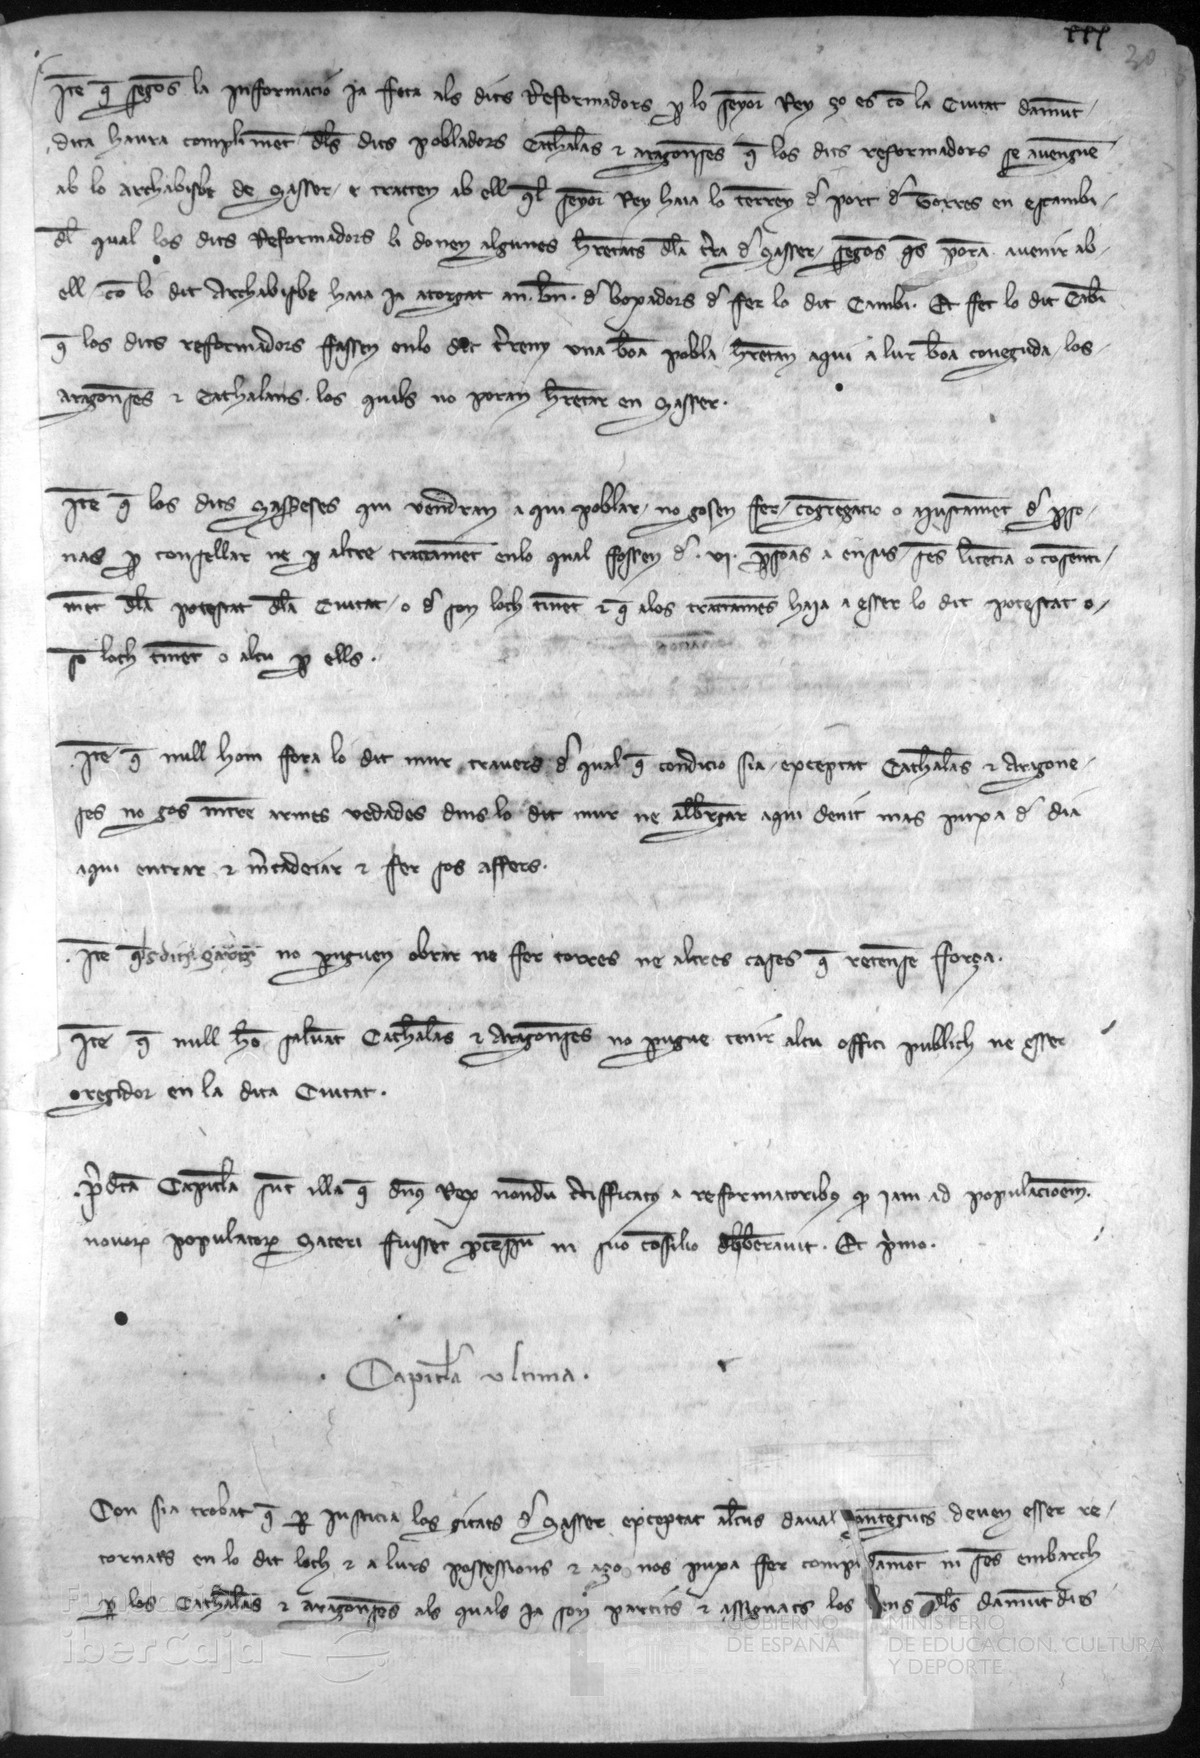 xxx
30
Itē q̄ segōs la informacio ja feta als dits Reformadors ꝑ lo senyor Rey zo es cō la Ciutat damūt
dita haura complimēt dl̄s dits pobladors Cathalās ⁊ aragonēses q̄ los dits reformadors se auenguē
ab lo archabisbe de Sasser e tracten ab ell q̄l senyor Rey haia lo terreny d port d Torres en escambi
dl̄ qual los dits Reformadors li donen algunes h̄retats dl̄a t̄ra d Sasser segōs q̄s pora auenir ab
ell cō lo dit Archabisbe haia ja atorgat an. bn̄. d boxadors d fer lo dit Cambi. Et fet lo dit Cābi
q̄ los dits reformadors fassen en lo dit t̄reny una bōa pobla h̄retan aqui a lur bōa coneguda los
aragonēses ⁊ Cathalans. los quals no poran h̄retar en Sasser.
Itē q̄ los dits Sasseses qui vendran aqui poblar no gosen fer cōgregacio o ajustamēt d ꝑso
nas ꝑ consellar ne ꝑ altre tractamēt en lo qual fossen d .vi. ꝑsoās a ensus sēs licēcia o cōsenti
mēt dl̄a potestat dl̄a Ciutat o d son loch tinēt ⁊ q̄ a los tractamēs haja a esser lo dit potestat o
sō loch tinēt o alcu ꝑ ells.
Itē q̄ null hom fora lo dit mur travers d qual q̄ condicio sia exceptat Cathalās ⁊ Aragone
ses no gos metre armes vedades dins lo dit mur ne albergar aqui de nit mas puxa d dia
aqui entrar ⁊ m̄cadejar ⁊ fer sos affers.
Itē q̄ls dits sarts no puguen obrar ne fer torres ne altres cases q̄ retensē força.
Itē q̄ null hō saluāt Cathalās ⁊ Aragonēses no pugue tenir alcu offici publich ne esser
regidor en la dita Ciutat.
p̄dc̄a Capitl̄a sūt illa q̄ dn̄s Rex nondū c̄tifficatꝰ a reformatoribꝰ ꝙ jam ad populacioēm
novoꝝ populatoꝝ Saceri fuisset ꝓcessū in suo cōsilio delib̄erauit. Et p̄mo.
. Capitl̄a vltima .
Con sia trobat q̄ ꝑ justicia los gitats d Sasser exceptat alcūs daual cōtenguts deuen esser re
tornats en lo dit loch ⁊ a lurs possessions ⁊ azo nos puxa fer compl damēt ni sēs embarch
ꝑ los Cathalās ⁊ aragonēses als quals ja son partits ⁊ assignats los bens dl̄s damūt dits
Fundación
iberCaja
GOBIERNO
DE ESPAÑA
MINISTERIO
DE EDUCACIÓN, CULTURA
Y DEPORTE